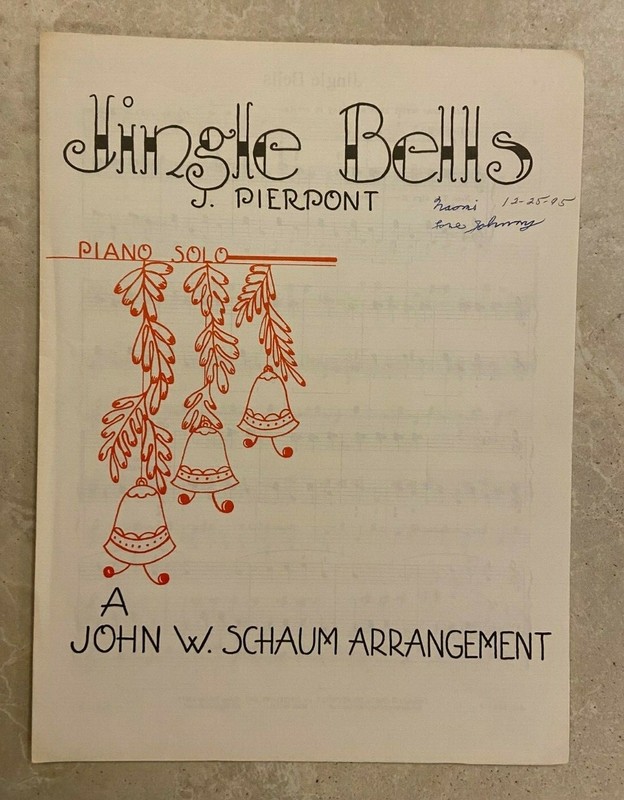 Jingle Bells
J. PIERPONT
Naomi 12-25-95
Love Johnny
PIANO SOLO
A
JOHN W. SCHAUM ARRANGEMENT